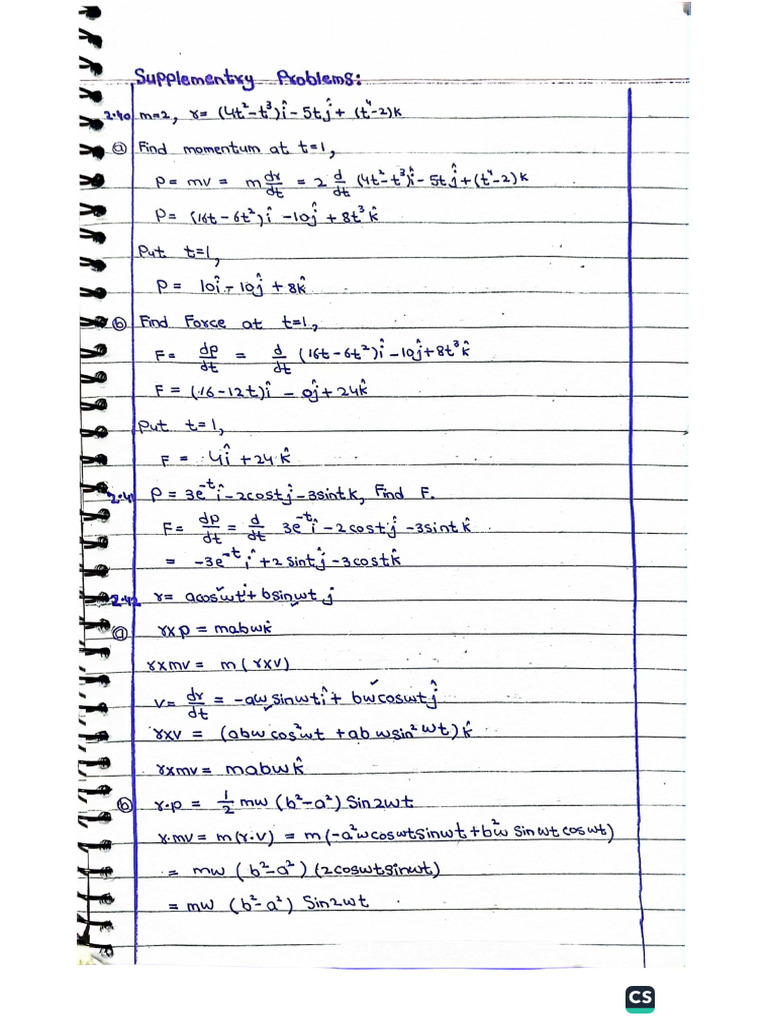 Supplementry Problems:
2.40 m=2, r= (4t²-t³)î-5tĵ+ (t⁴-2)k
ⓐ Find momentum at t=1,
P= mv = m dr/dt = 2 d/dt (4t²-t³)î-5tĵ+(t⁴-2)k
P= (16t-6t²)î -10ĵ+8t³k̂
Put t=1,
P= 10î-10ĵ+8k̂
ⓑ Find Force at t=1,
F= dp/dt = d/dt (16t-6t²)î-10ĵ+8t³k̂
F= (16-12t)î - 0ĵ+24k̂
Put t=1,
F= 4î+24k̂
2.41 P=3e⁻ᵗî-2costĵ-3sintk, Find F.
F= dp/dt = d/dt 3e⁻ᵗî-2costĵ-3sintk̂
= -3e⁻ᵗî+2sintĵ-3costk̂
2.42 r= acoswtî+bsinwtĵ
ⓐ rxp=mabwk̂
rxmv= m(rxv)
v= dr/dt = -awsinwtî+ bwcoswtĵ
rxv = (abwcos²wt +abwsin²wt)k̂
rxmv= mabwk̂
ⓑ r.p= 1/2 mw(b²-a²)Sin2wt
r.mv=m(r.v) = m(-a²wcoswtsinwt+b²wsinwtcoswt)
= mw(b²-a²)(2coswtsinwt)
= mw(b²-a²) Sin2wt
CS